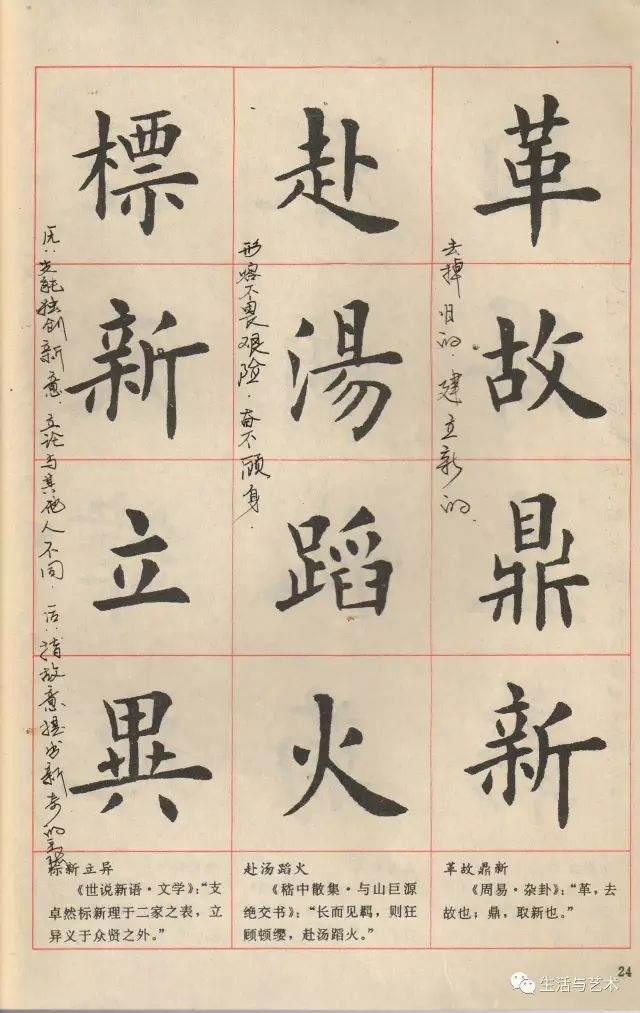 革故鼎新
去掉旧的.建立新的.
赴湯蹈火
形容不畏艰险.奋不顾身.
標新立異
独创新意.立论与其他人不同.后:指故意提出新奇的主张
革故鼎新
《周易·杂卦》：“革，去
故也；鼎，取新也。”
赴汤蹈火
《嵇中散集·与山巨源
绝交书》：“长而见羁，则狂
顾顿缨，赴汤蹈火。”
标新立异
《世说新语·文学》：“支
卓然标新理于二家之表，立
异义于众贤之外。”
24
生活与艺术